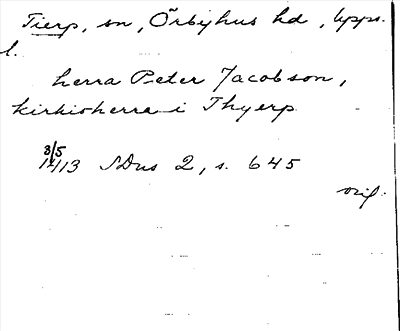 Tierp, sn, Örbyhus hd, Upps.
l.
herra Peter Jacobson,
kirkioherra i Thyerp
8/5
1413 SDns 2, s. 645
orig.